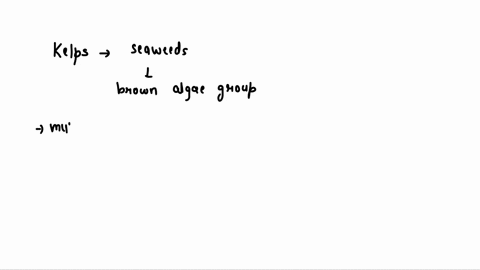 Kelps → seaweeds
↓
brown algae group
→ mu